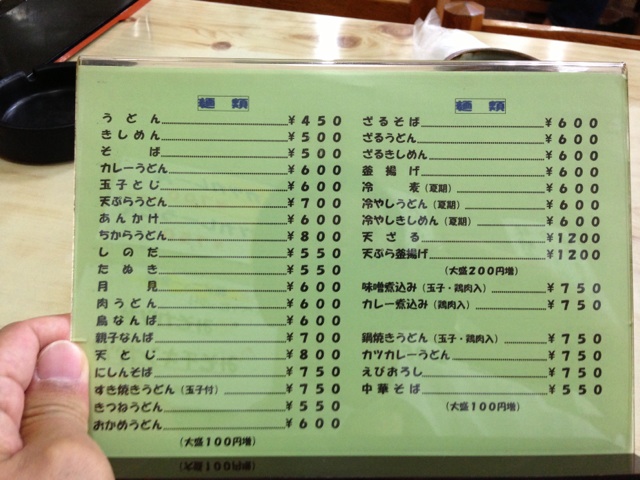 麺類
うどん ¥450
きしめん ¥500
そば ¥500
カレーうどん ¥600
玉子とじ ¥600
天ぷらうどん ¥700
あんかけ ¥600
ちからうどん ¥800
しのだ ¥550
たぬき ¥550
月見 ¥600
肉うどん ¥600
鳥なんば ¥600
親子なんば ¥700
天とじ ¥800
にしんそば ¥750
すき焼きうどん（玉子付） ¥750
きつねうどん ¥550
おかめうどん ¥600
（大盛100円増）
麺類
ざるそば ¥600
ざるうどん ¥600
ざるきしめん ¥600
釜揚げ ¥600
冷麦（夏期） ¥600
冷やしうどん（夏期） ¥600
冷やしきしめん（夏期） ¥600
天ざる ¥1200
天ぷら釜揚げ ¥1200
（大盛200円増）
味噌煮込み（玉子・鶏肉入） ¥750
カレー煮込み（玉子・鶏肉入） ¥750
鍋焼きうどん（玉子・鶏肉入） ¥750
カツカレーうどん ¥750
えびおろし ¥750
中華そば ¥550
（大盛100円増）